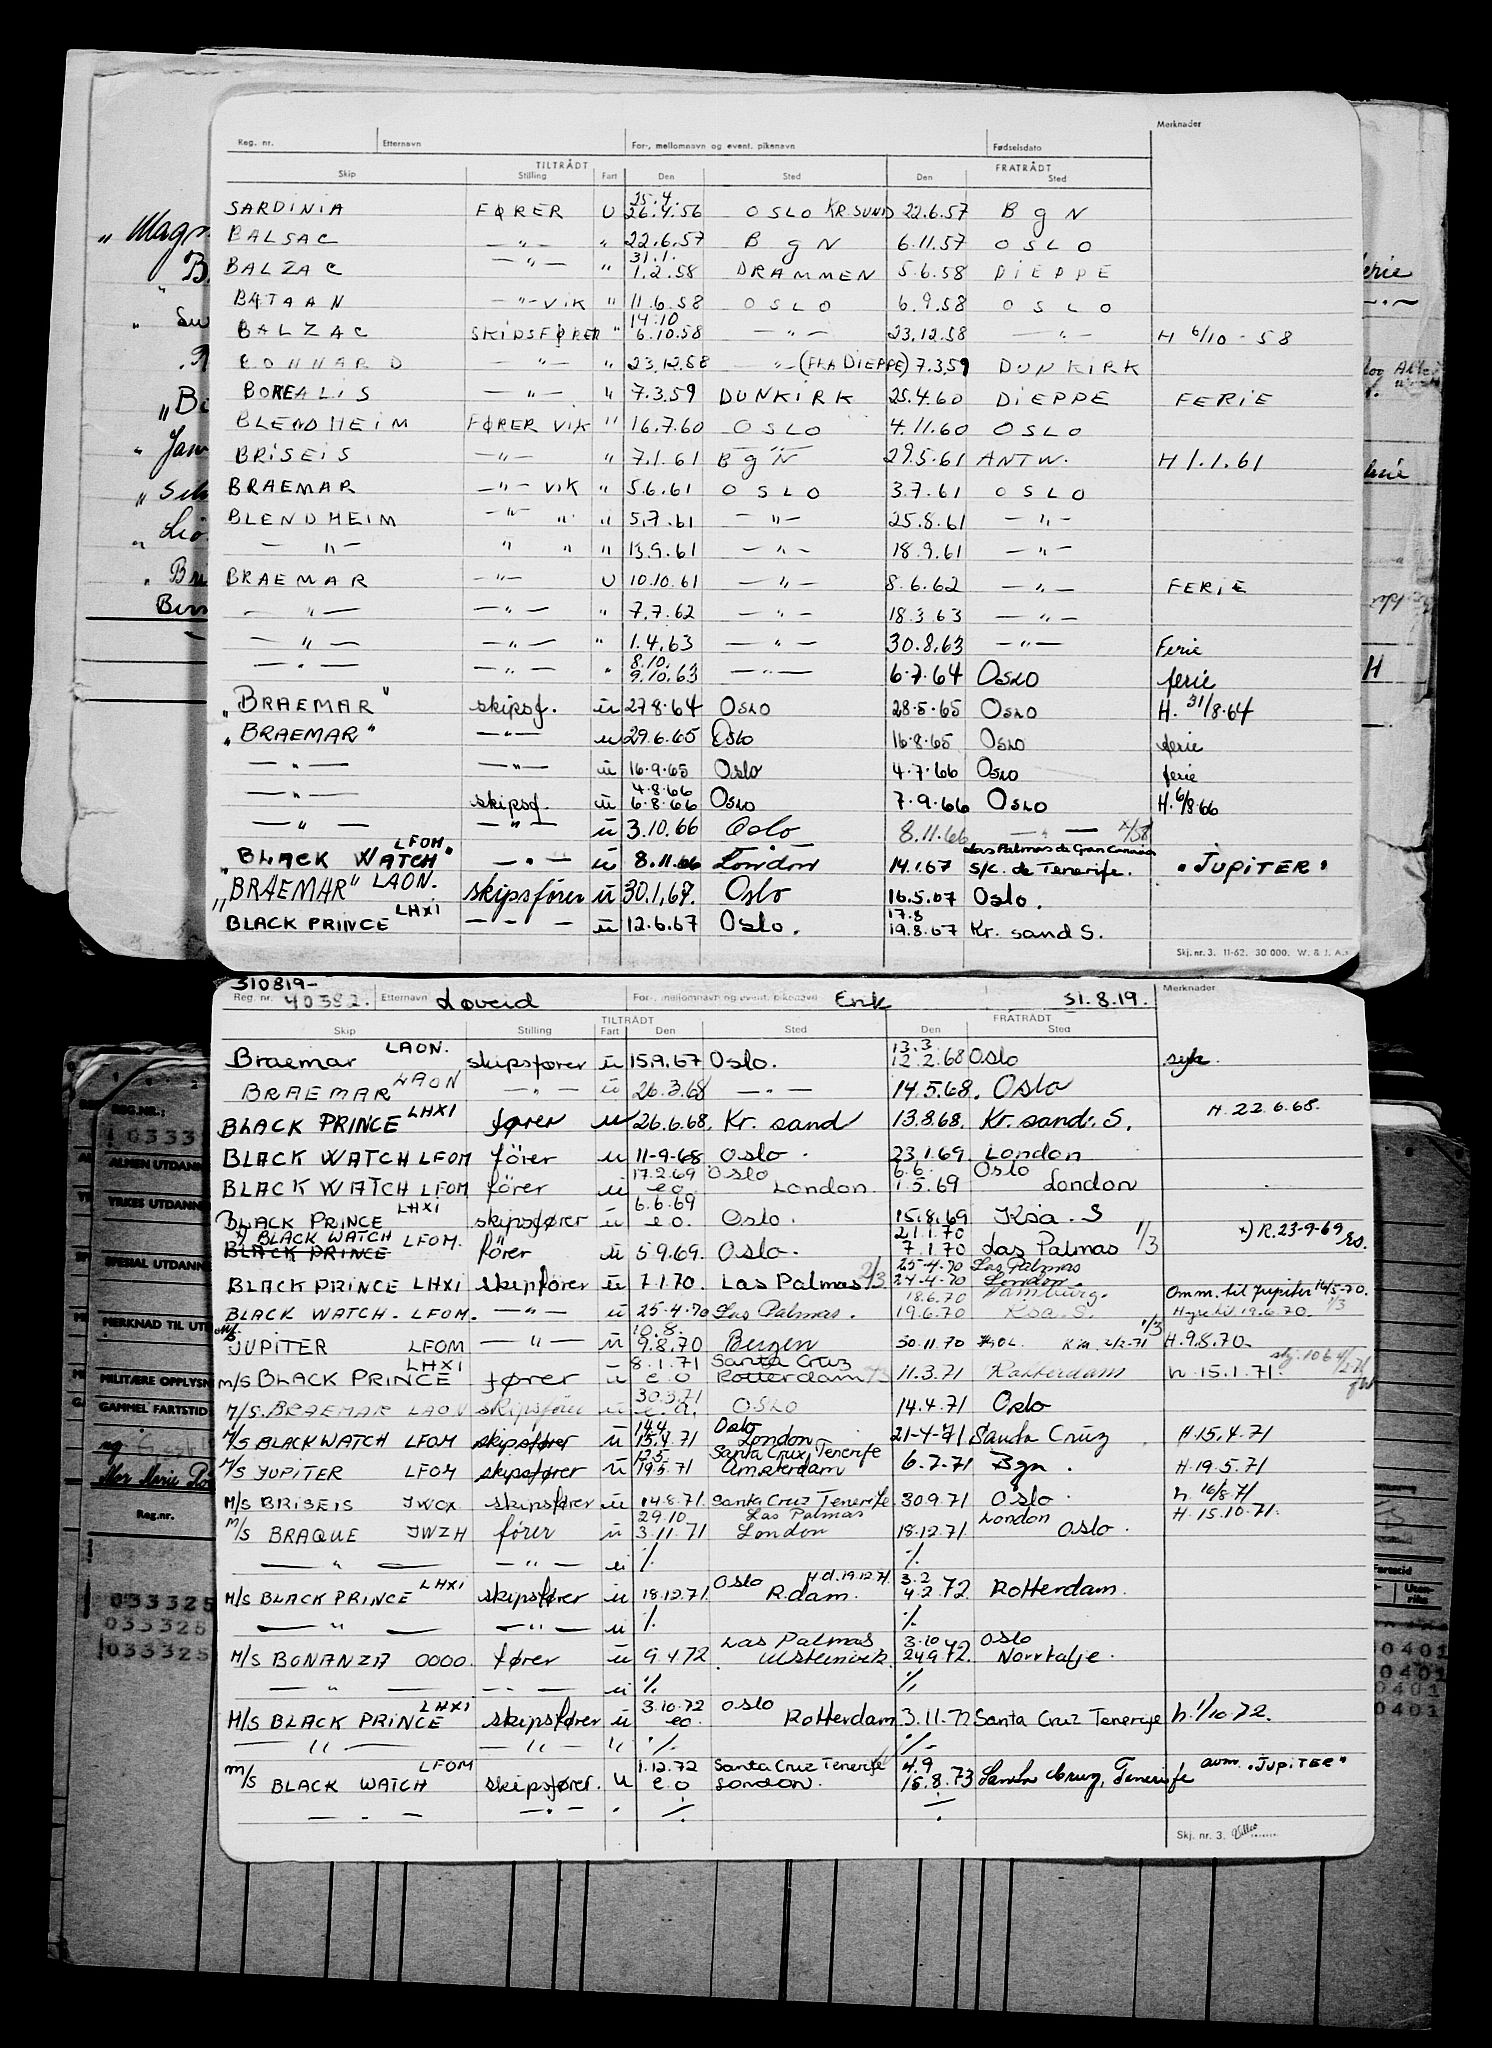 Merknader
Reg. nr. Etternavn For-, mellomnavn og event. pikenavn Fødselsdato
TILTRÅDT FRATRÅDT
Skip Stilling Fart Den Sted Den Sted
25.4.
SARDINIA FØRER U 26.4.56 OSLO KR.SUND 22.6.57 BgN
BALSAC —"— " 22.6.57 BgN 6.11.57 OSLO
31.1.
BALZAC —"— " 1.2.58 DRAMMEN 5.6.58 DIEPPE
BATAAN —"— VIK " 11.6.58 OSLO 6.9.58 OSLO
14.10
BALZAC SKIPSFØRER " 6.10.58 —"— 23.12.58 —"— H 6/10-58
BONNARD —"— " 23.12.58 —"— (FRA DIEPPE) 7.3.59 DUNKIRK
BOREALIS —"— " 7.3.59 DUNKIRK 25.4.60 DIEPPE FERIE
BLENDHEIM FØRER VIK " 16.7.60 OSLO 4.11.60 OSLO
BRISEIS —"— " 7.1.61 BgN 29.5.61 ANTW. H 1.1.61
BRAEMAR —"— VIK " 5.6.61 OSLO 3.7.61 OSLO
BLENDHEIM —"— " " 5.7.61 —"— 25.8.61 —"—
—"— " " " 13.9.61 —"— 18.9.61 —"—
BRAEMAR —"— U 10.10.61 —"— 8.6.62 —"— FERIE
—"— —"— " 7.7.62 —"— 18.3.63 —"—
—"— —"— " 1.4.63 —"— 30.8.63 —"— Ferie
8.10.
—"— —"— " 9.10.63 —"— 6.7.64 Oslo ferie
"BRAEMAR" skipsf. u 27.8.64 Oslo 28.5.65 Oslo H. 31/8.64
"BRAEMAR" —"— u 29.6.65 Oslo 16.8.65 Oslo ferie
—"— —"— u 16.9.65 Oslo 4.7.66 Oslo ferie
4.8.66
—"— skipsf. u 6.8.66 Oslo 7.9.66 Oslo H. 6/8.66
—"— —"— u 3.10.66 Oslo 8.11.66 —"—
LFOM Las Palmas de Gran Canaria
"BLACK WATCH" —"— u 8.11.66 London 14.1.67 S/C. de Tenerife. "JUPITER"
"BRAEMAR" LAON. skipsfører u 30.1.67. Oslo 16.5.67 Oslo.
LHXI 17.8
BLACK PRINCE —"— u 12.6.67 Oslo. 19.8.67 Kr. sand S.
Skj. nr. 3. 11-62. 30 000. W. & J. A.
310819-
Reg. nr. 40382. Etternavn Løveid For-, mellomnavn og event. pikenavn Erik 31.8.19. Merknader
TILTRÅDT FRATRÅDT
Skip Stilling Fart Den Sted Den Sted
13.3.
Braemar LAON. skipsfører u 15.9.67 Oslo. 12.2.68 Oslo syk.
BRAEMAR LAON —"— u 26.3.68 —"— 14.5.68. Oslo
BLACK PRINCE LHXI fører u 26.6.68. Kr. sand 13.8.68. Kr. sand. S. H. 22.6.68.
BLACK WATCH LFOM fører u 11-9-68 Oslo. 23.1.69. London
17.2.69 Oslo 6.6. Oslo
BLACK WATCH LFOM fører u e.o. London 1.5.69 London
6.6.69
BLACK PRINCE LHXI skipsfører u e.o. Oslo. 15.8.69 Ksa. S
x) BLACK WATCH 21.1.70 x) R.23-9-69
BLACK PRINCE LFOM. fører u 5.9.69. Oslo. 7.1.70 Las Palmas 1/3
25-4-70 Las Palmas
BLACK PRINCE LHXI skipsfører u 7.1.70. Las Palmas 2/3 24-4-70 London.
18.6.70 Hamburg. Omm. til Jupiter 16/5-70.
BLACK WATCH. LFOM. —"— u 25-4-70 Las Palmas. 19.6.70 Ksa. S. Hyre til 19.6.70. 1/3
M/s 10.8.
JUPITER LFOM —"— u 9.8.70 Bergen 30.11.70 H.9.8.70.
LHXI 8.1.71 Santa Cruz
M/S BLACK PRINCE fører u e.o Rotterdam 11.3.71 Rotterdam h. 15.1.71.
30.3.71
M/S. BRAEMAR LAON skipsfører u e.o. OSLO 14.4.71 Oslo
14.4 Oslo
M/S BLACK WATCH LFOM skipsfører u 15.4.71 London 21-4-71 Santa Cruz H.15.4.71
12.5 Santa Cruz Tenerife
M/S JUPITER LFOM skipsfører u 19.5.71 Amsterdam 6.7.71 Bgn. H.19.5.71
M/S BRISEIS JWCX skipsfører u 14.8.71. Santa Cruz Tenerife 30.9.71 Oslo. h 16/8.71
29.10 Las Palmas London H. 15.10.71.
M/S BRAQUE JWZH fører u 3.11.71 London 18.12.71 Oslo.
—"— —"— u % %
LHXI Oslo H d. 19.12.71 3.2
M/S BLACK PRINCE skipsfører u 18.12.71. R.dam. 4.2.72. Rotterdam.
—"— —"— u % %
Las Palmas 3.10 Oslo
M/S BONANZA 0000. fører u 9.4.72 Ulsteinvik 24.9.72. Norrtalje.
—"— —"— u % %
LHXI 3.10.72 Oslo
M/S BLACK PRINCE skipsfører u e.o. Rotterdam 3.11.72 Santa Cruz Tenerife h. 1/10.72.
—"— —"— " % %
LFOM 1.12.72 Santa Cruz Tenerife 4.9
M/S BLACK WATCH skipsfører. u e.o London. 15.8.73 Santa Cruz, Tenerife avm. "JUPITER"
—"— —"— " % %
Skj. nr. 3.